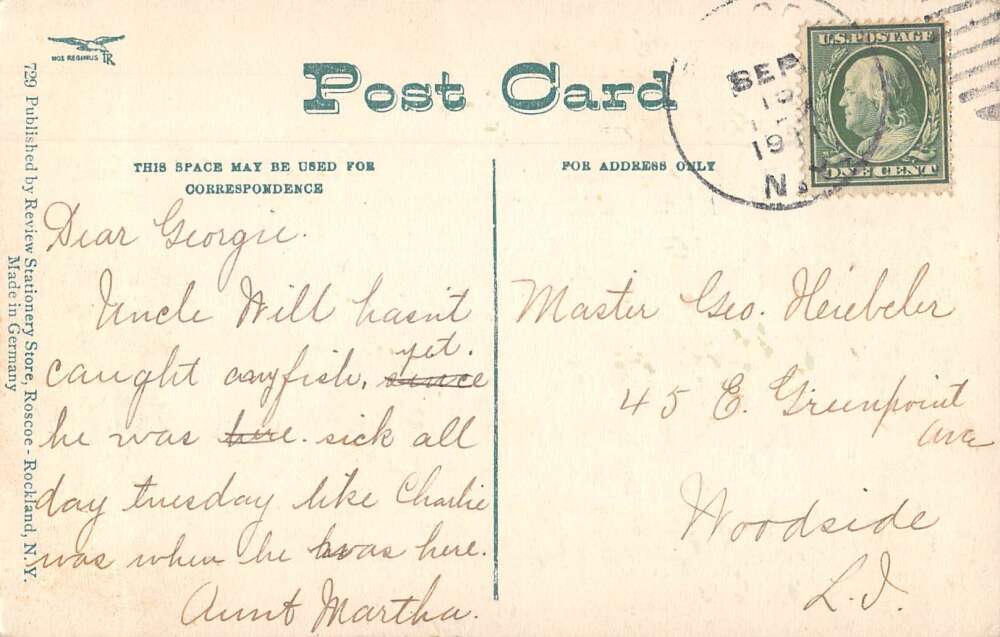 NOS REGIMUS TR
Post Card
THIS SPACE MAY BE USED FOR
CORRESPONDENCE
FOR ADDRESS ONLY
729 Published by Review Stationery Store, Roscoe - Rockland, N. Y.
Made in Germany
SEP
N.Y.
U.S. POSTAGE
ONE CENT
Dear Georgie.
Uncle Will hasn't
yet.
caught any fish, since
he was here. sick all
day tuesday like Charlie
was when he was here.
Aunt Martha.
Master Geo. Heiebeler
45 E. Greenpoint
Ave
Woodside
L.I.